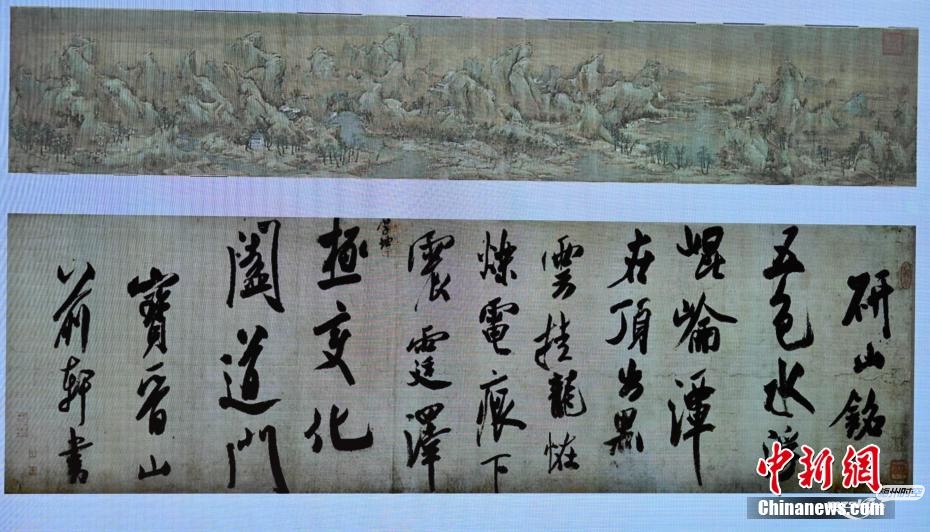 研山銘
五色水浮
崐崘潭
在頂出黑
雲挂龍恠
爍電痕下
震霆澤
厚坤
極變化
闔道門
寶晉山
前軒書
中新網
Chinanews.com
梅州时空